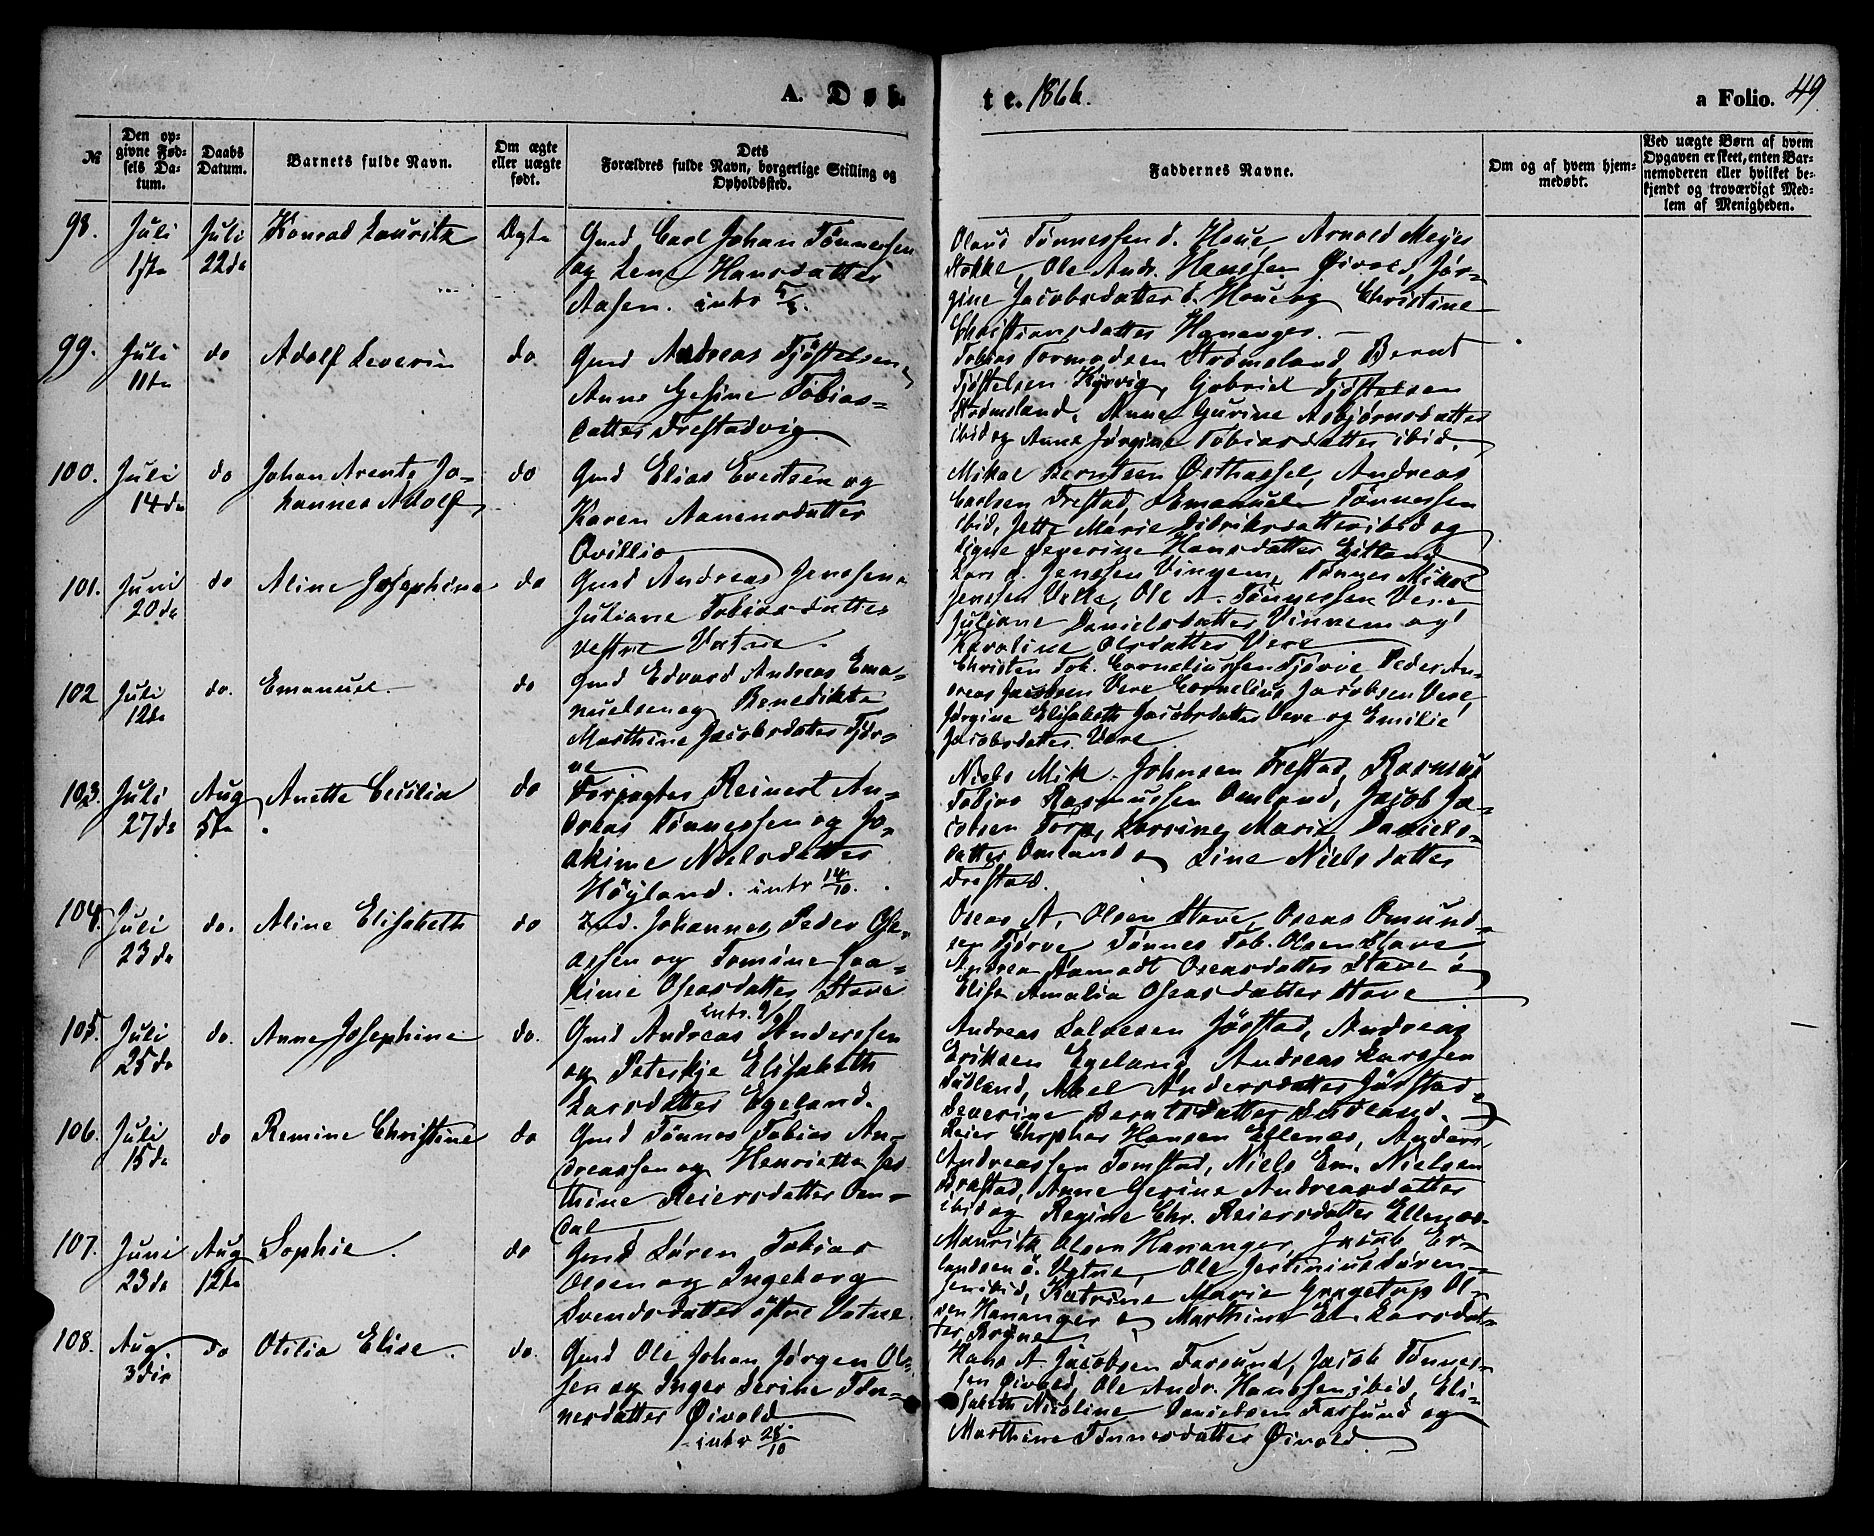 A. Døb-
te. 1866.
a Folio. 49.
№
Den op-
givne Fød-
sels Da-
tum.
Daabs
Datum.
Barnets fulde Navn.
Om ægte
eller uægte
født.
Dets
Forældres fulde Navn, borgerlige Stilling og
Opholdssted.
Faddernes Navne.
Om og af hvem hjem-
medøbt.
Ved uægte Børn af hvem
Opgaven er skeet, enten Bar-
nemoderen eller hvilket be-
kjendt og troværdigt Med-
lem af Menigheden.
98. Juli 1ste Juli 22de Konrad Lauritz Ægte
Gmd Carl Johan Tønnessen
og Lene Hansdatter
Aasen. intr 5/8.
Olaus Tønnessen d. Houe Arnold Meyer
Stokke, Ole Andr. Hanssen Øivold, Jør-
gine Jacobsdatter d. Houe og Christine
Christiansdatter Hananger.
99. Juli 11te do Adolf Severin do
Gmd Andreas Tjøstelsen
Anne Gesine Tobias-
datter Frestadvig.
Tobias Tormodsen Strømsland, Bernt
Tjøstelsen Kjørvig, Gabriel Tjøstelsen
Strømsland, Anne Gurine Asbjørnsdatter
ibid og Anne Jørgine Tobiasdatter ibid.
100. Juli 14de do Johan Arents Jo-
hannes Adolf do
Gmd Elias Evertsen og
Karen Aanensdatter
Qvillio
Mikal Berntsen Østhassel, Andreas
Carlsen Frestad, Emanuel Tønnessen
ibid, Jette Marie Didriksdatter ibid og
Signe Severine Hansdatter Eitland
101. Juni 20de do Aline Josephine do
Gmd Andreas Jenssen
Juliane Tobiasdatter
vestre Vatne.
Lars A. Jenssen Vingem, Tønnes Mikal
Jenssen Velle, Ole A. Tønnessen Vere
Juliane Danielsdatter Vinnem og
Karoline Olsdatter Vere
102 Juli 12de do. Emanuel do
Gmd Edvard Andreas Ema-
nuelsen og Benedikte
Marthine Jacobsdatter Tjør-
ve
Christen Tob. Corneliussen Tjørve, Peder An-
dreas Jacobsen Vere, Cornelius Jacobsen Vere,
Jørgine Elisabeth Jacobsdatter Vere og Emilie
Jacobsdatter Vere
103. Juli 27de Aug 5te Anette Cecilia do
Forpagter Reinert An-
dreas Tønnessen og Jo-
akime Nielsdatter
Høyland. intr 14/10.
Niels Mik. Johnsen Frestad, Rasmus
Tobias Rasmussen Omland, Jacob Ja-
cobsen Torp, Larsine Marie Daniels-
datter Omland og Line Nielsdatter
Frestad.
104. Juli 23de do. Aline Elisabeth do
Johannes Peder Ose-
assen og Tomine Joa-
kime Oseasdatter Stave
Oseas A. Olsen Stave, Oseas Omund-
sen Tjørve Tønnes Tob. Olsen Stave
Andrea Oseasdatter Stave
Elise Amalia Oseasdatter Stave
105. Juli 25de do. Anne Josephine do.
intr. 9/9
Gmd Andreas Anderssen
og Peterkje Elisabeth
Larsdatter Egeland.
Andreas Salvesen Jørstad, Andreas
Eriksen Egeland, Andreas Larssen
Sudland, Abel Andersdatter Jørstad
Severine Berntsdatter Sudland.
106. Juli 15de do Remine Christine do
Gmd Tønnes Tobias An-
dreassen og Henriette Jos-
thine Reiersdatter Om-
dal
Reier Chrpher Hansen Ellenes, Anders
Andreassen Tomstad, Niels Em. Nielsen
Brastad, Anne Gesine Andreasdatter
ibid og Regine Chr. Reiersdatter Ellenes.
107. Juni 23de Aug 12te Sophie. do
Gmd Søren Tobias
Olsen og Ingeborg
Svendsdatter østre Vatne.
Mauritz Olsen Hananger, Jacob Er-
landsen ø. Vatne, Ole Jertinius Søren-
sen ibid, Katrine Marie Gregertsp Ol-
sen Hananger og Marthine El. Larsdat-
ter Bryne
108. Aug. 3die do Otilia Elise. do.
Gmd Ole Johan Jørgen Ol-
sen og Inger Serine Tøn-
nesdatter Øivold
intr 28/10
Hans A. Jacobsen Farsund, Jacob Tønnes-
sen Øivold, Ole Andr. Hanssen ibid, Eli-
sabeth Nicoline Danielsen Farsund og
Marthine Tønnesdatter Øivold.